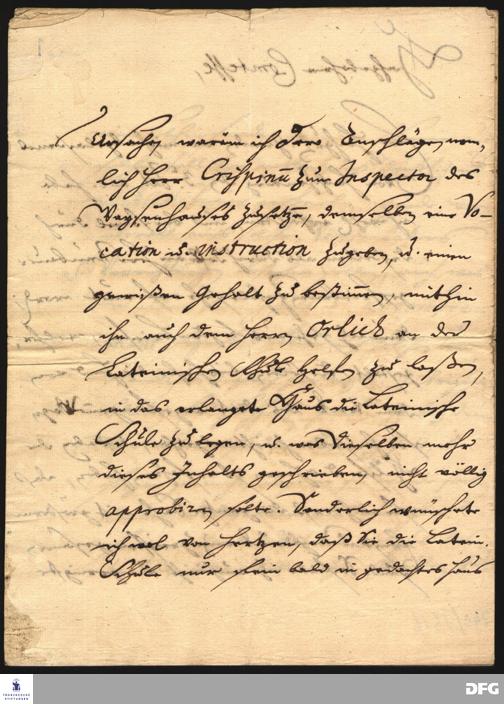 Ursachen warum ich Dero Anschlägen nem-
lich Herr Crispinū zum Inspector des
Waysenhauses zu setzen, demselben eine Vo-
cation u. instruction zu geben, u. einen
gewißen Gehalt zu bestimmen, mithin
ihn auch dem Herrn Orlich an der
Lateinischen Schule helfen zu laßen,
in das erlangete Haus die Lateinische
Schule zu legen, u. was dieselben mehr
dieses Inhalts geschrieben, nicht völlig
approbiren solte. Sonderlich wünschete
ich wol von Hertzen, daß Sie die Latein.
Schule nur fein bald in gedachtes Haus
FRANCKESCHE
STIFTUNGEN
DFG